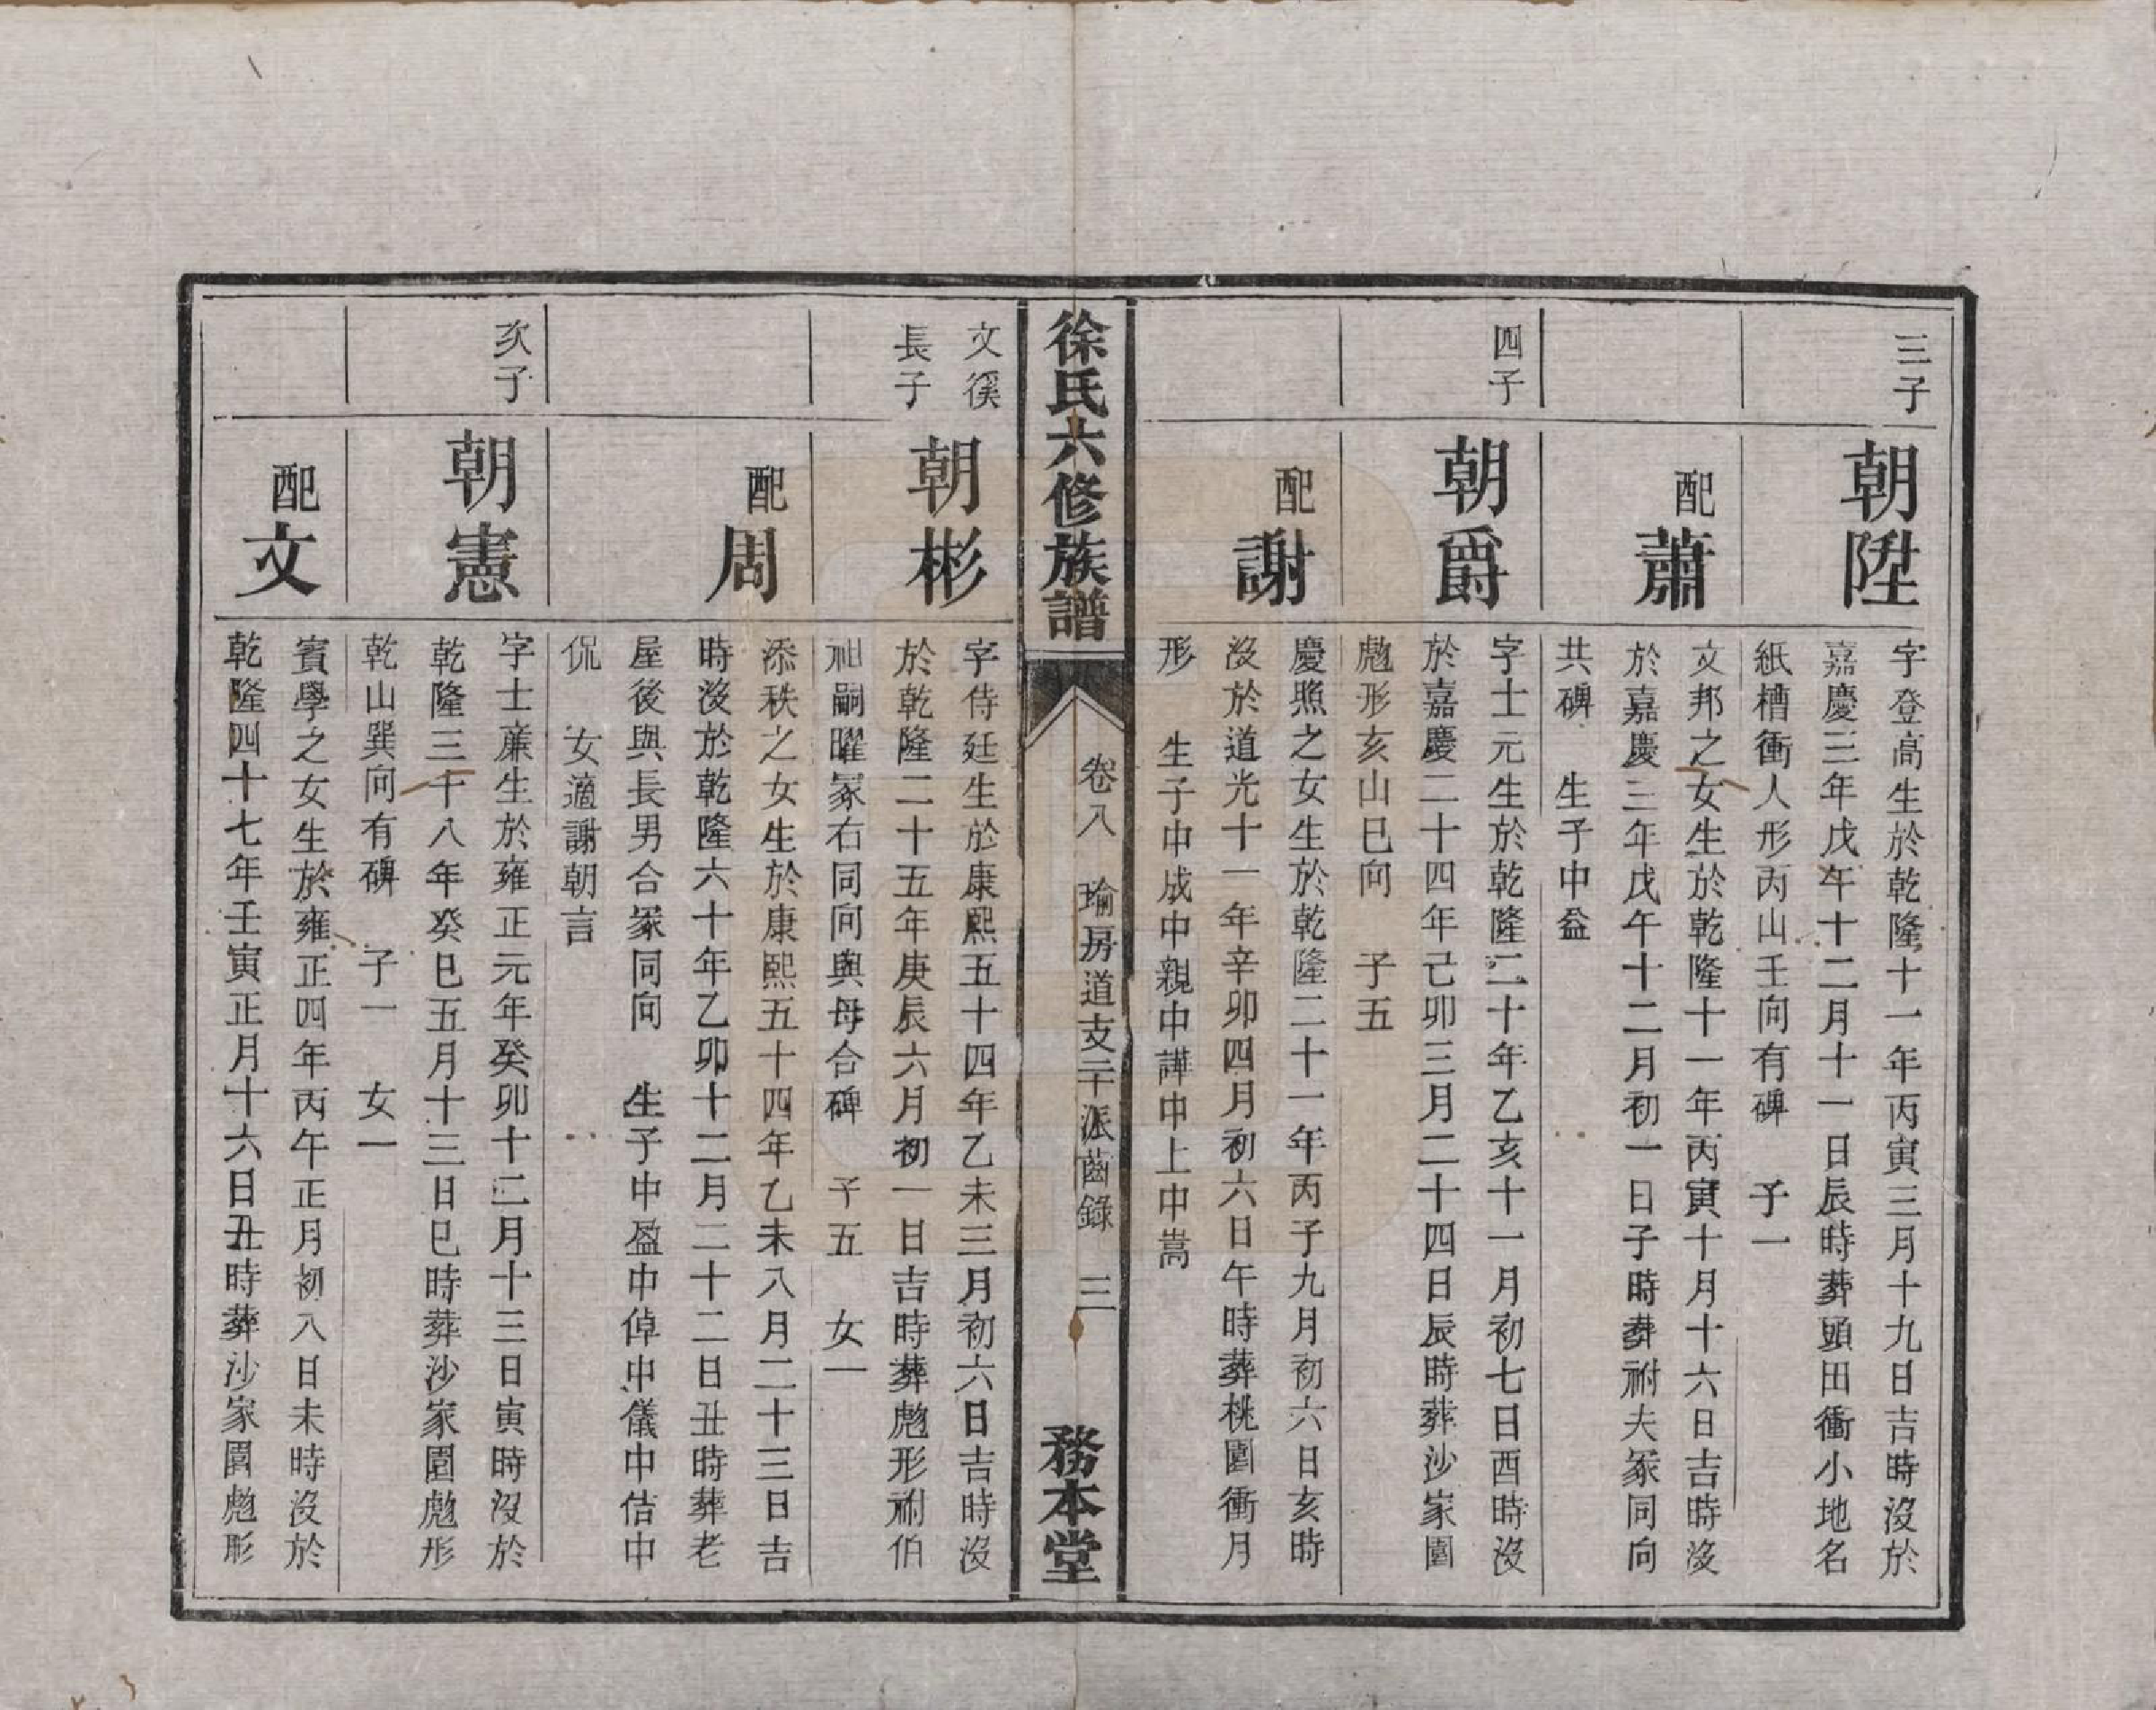 三子
朝陞
字登高生於乾隆十一年丙寅三月十九日吉時沒於
嘉慶三年戊午十二月十一日辰時葬頭田衝小地名
紙槽衝人形丙山壬向有碑　子一
配蕭
文邦之女生於乾隆十一年丙寅十月十六日吉時沒
於嘉慶三年戊午十二月初一日子時葬祔夫冢同向
共碑　生子中益
四子
朝爵
字士元生於乾隆二十年乙亥十一月初七日酉時沒
於嘉慶二十四年己卯三月二十四日辰時葬沙家園
虎形亥山巳向　子五
配謝
慶照之女生於乾隆二十一年丙子九月初六日亥時
沒於道光十一年辛卯四月初六日午時葬桃園衝月
形　生子中成中親中譁中上中嵩
徐氏六修族譜
卷八　瑜房道支三十派齒錄　三
務本堂
文徯
長子
朝彬
字侍廷生於康熙五十四年乙未三月初六日吉時沒
於乾隆二十五年庚辰六月初一日吉時葬虎形祔伯
祖嗣曜冢右同向與母合碑　子五　女一
配周
添秩之女生於康熙五十四年乙未八月二十三日吉
時沒於乾隆六十年乙卯十二月二十二日丑時葬老
屋後與長男合冢同向　生子中盈中倬中儀中佶中
侃　女適謝朝言
次子
朝憲
字士亷生於雍正元年癸卯十二月十三日寅時沒於
乾隆三十八年癸巳五月十三日巳時葬沙家園虎形
乾山巽向有碑　子一　女一
配文
賓學之女生於雍正四年丙午正月初八日未時沒於
乾隆四十七年壬寅正月十六日丑時葬沙家園虎形